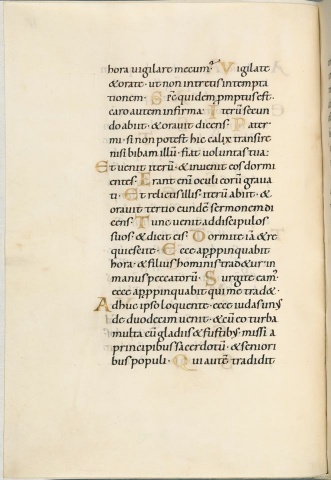 hora uigilare mecum? Vigilate
& orate · ut non intretis intempta
tionem · Spr̄s quidem p̄mptus est ·
caro autem infirma · Iterū secun
do abiit · & orauit dicens · Pater
mi · si non potest hic calix transire
nisi bibam illū · fiat uoluntas tua ·
Et uenit iterū · & inuenit eos dormi
entes · Erant enī oculi eorū graua
ti · Et relictis illis · iterū abiit · &
orauit tertio eundē sermonem di
cens · Tunc uenit ad discipulos
suos · & dicit eis · Dormite iā & re
quiescite · Ecce appropinquabit
hora · & filius hominis trad&ur in
manus peccatorū · Surgite eam᷒
ecce appropinquabit qui me trad& ·
Adhuc ipso loquente · ecce iudas unus
de duodecim uenit · & cū eo turba
multa cū gladiis & fustib; · missi a
principibus sacerdotū · & seniori
bus populi · Qui autē tradidit